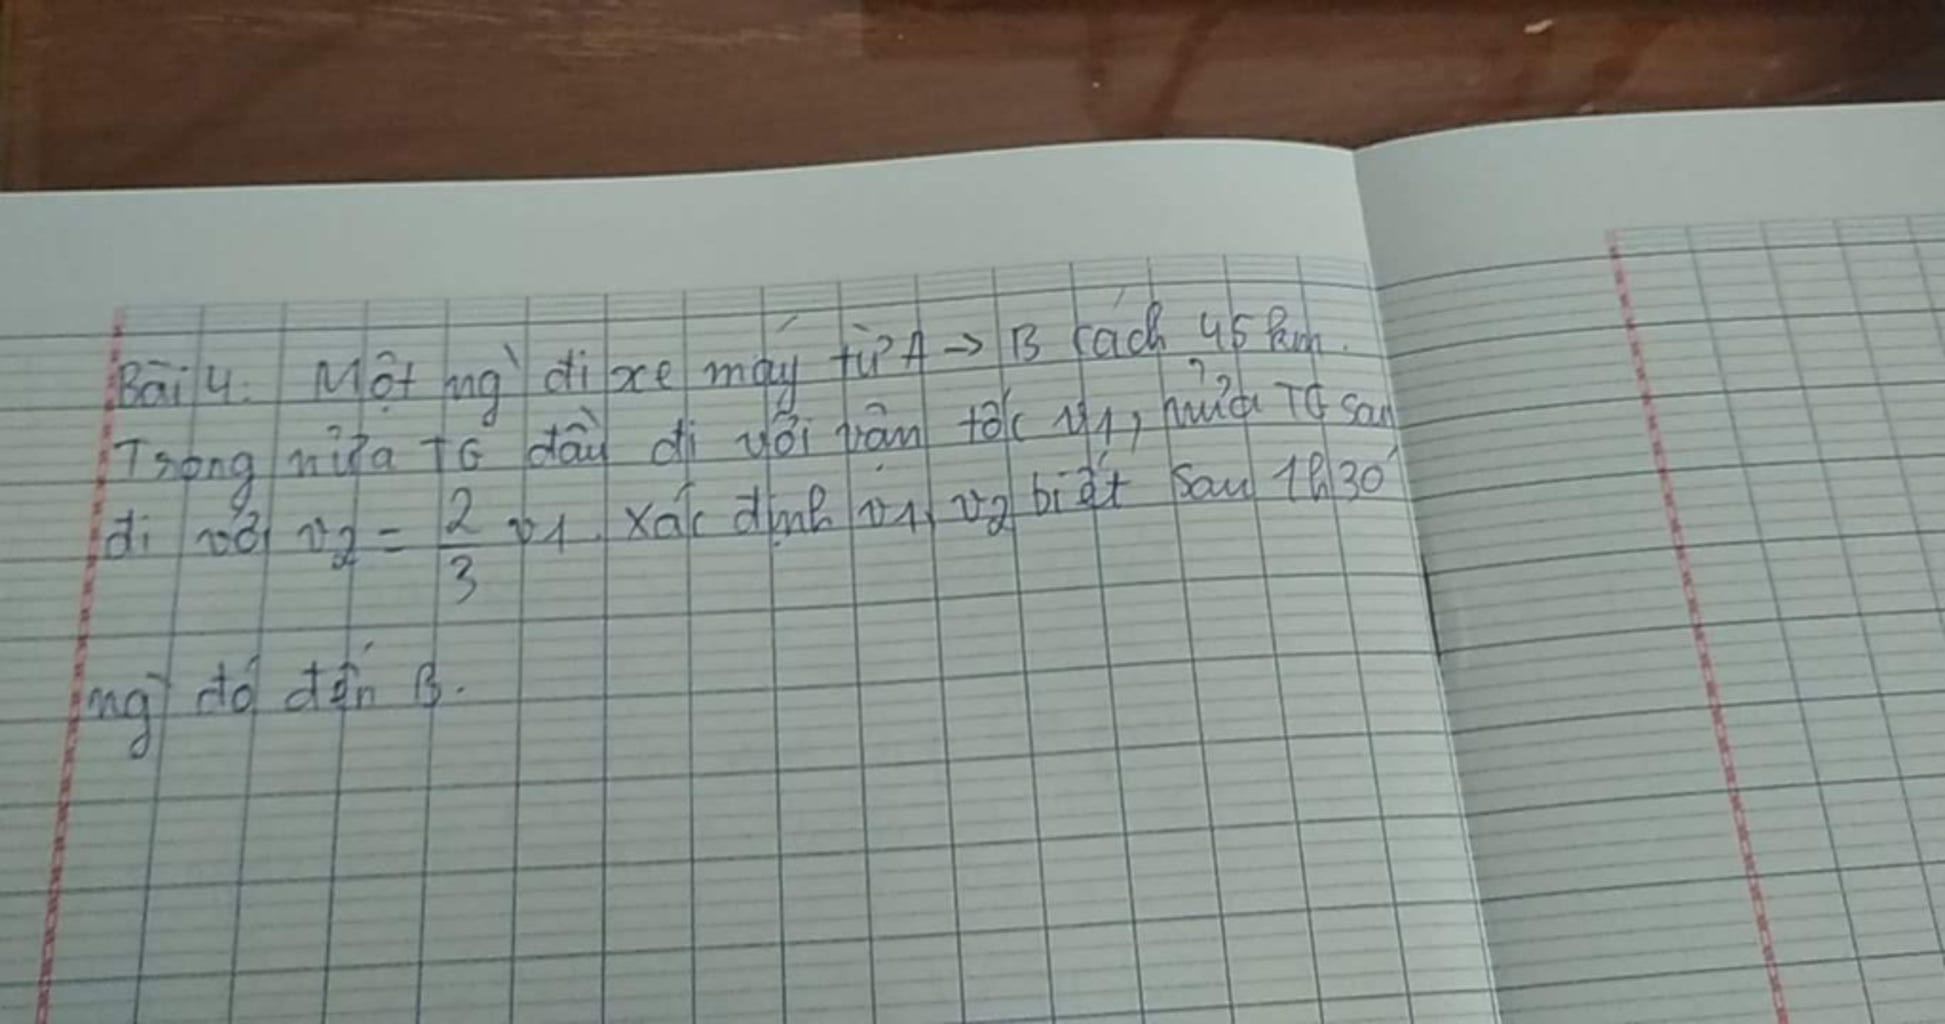 Bài 4. Một ng` đi xe máy từ A → B cách 45 km.
Trong nửa TG đầu đi với vận tốc v1, nửa TG sau
đi với v2 = 2/3 v1. Xác định v1, v2 biết sau 1h30'
ng` đó đến B.